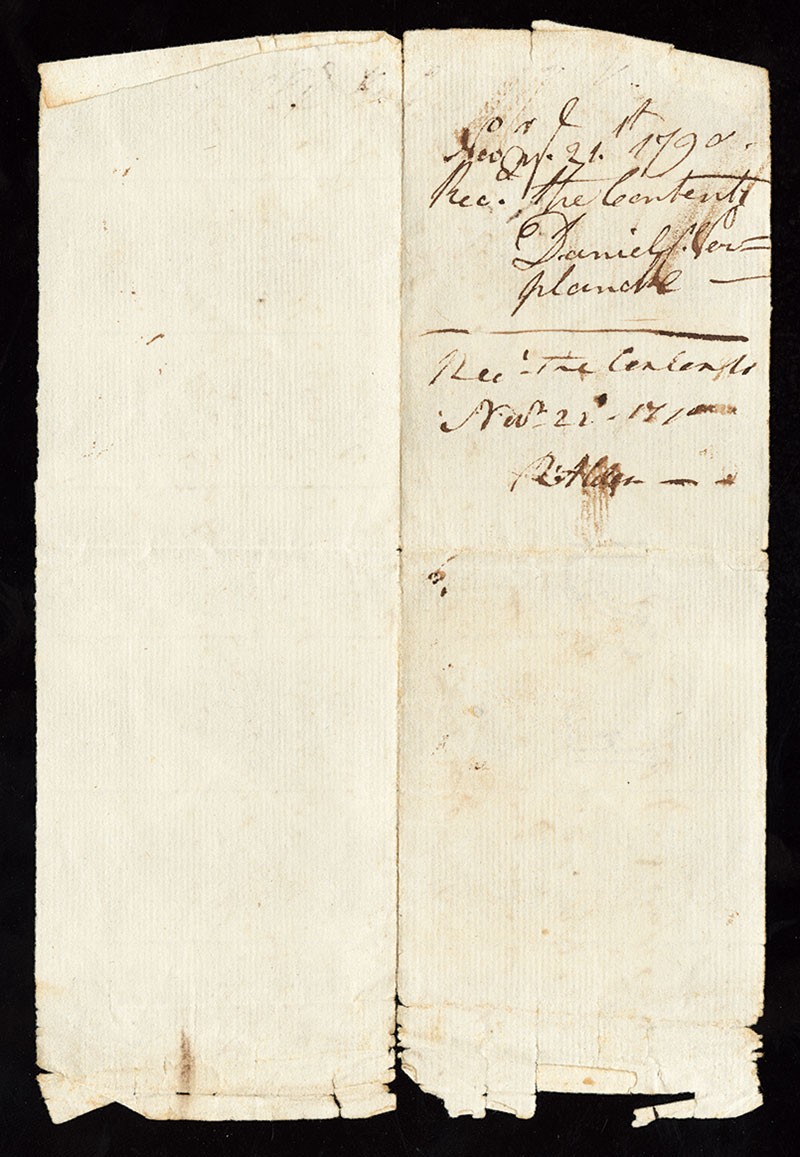 Nov. 21.st 1790.
Rec.d the Contents
Daniel C. Ver=
planck
Rec.d the Contents
Novr. 22d 1790
R. Alden